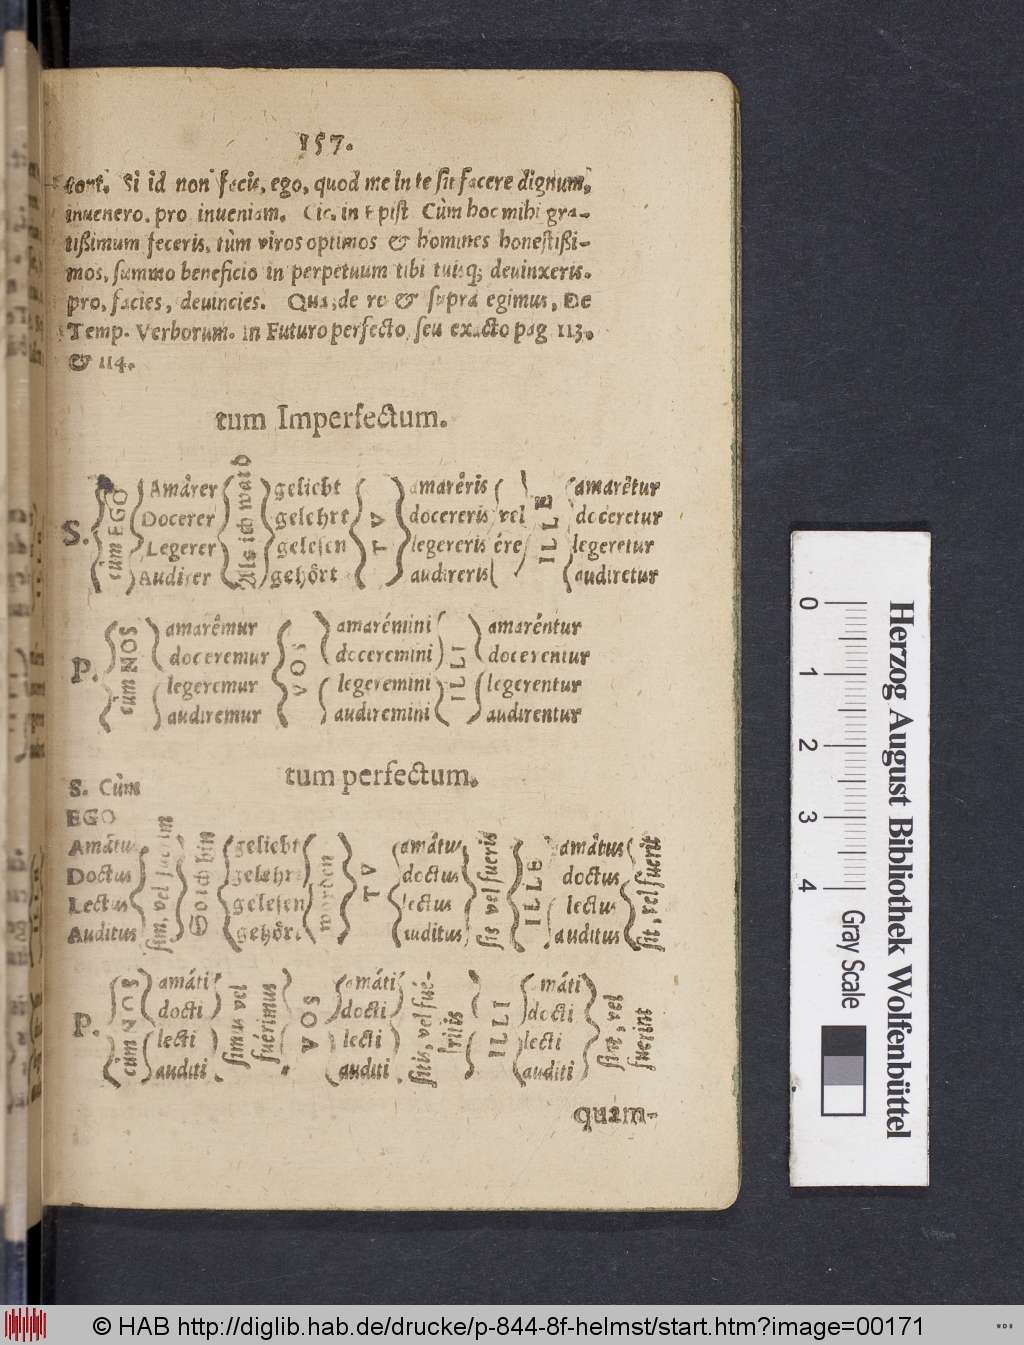 157.
Cont. Si id non facis, ego, quod me in te sit facere dignum,
invenero, pro inveniam. Cic. in Epist Cùm hoc mihi gra-
tißimum feceris, tùm viros optimos & homines honestißi-
mos, summo beneficio in perpetuum tibi tuisq; devinxeris.
pro, facies, devincies. Qua de re & supra egimus, De
Temp. Verborum. in Futuro perfecto, seu exacto pag 113.
& 114.
tum Imperfectum.
S. cùm EGO Amârer Docerer Legerer Audirer Als ich ward geliebt gelehrt gelesen gehört TV amarêris docereris legereris audireris vel ére ILLE amarêtur doceretur legeretur audiretur
P. cùm NOS amarêmur doceremur legeremur audiremur VOS amarémini doceremini legeremini audiremini ILLI amaréntur docerentur legerentur audirentur
tum perfectum.
S. Cùm
EGO
Amâtus Doctus Lectus Auditus sim, vel fuerim So ich bin geliebt gelehrt gelesen gehört worden TV amâtus doctus lectus auditus sis vel fueris ILLE amâtus doctus lectus auditus sit vel fuerit
P. cùm NOS amáti docti lecti auditi simus vel fuerimus VOS amáti docti lecti auditi sitis, vel fué- ritis ILLI amáti docti lecti auditi
quam-
0
1
2
3
4
Gray Scale
Herzog August Bibliothek Wolfenbüttel
© HAB http://diglib.hab.de/drucke/p-844-8f-helmst/start.htm?image=00171